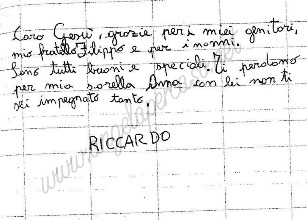 Caro Gesù, grazie per i miei genitori,
mio fratello Filippo e per i nonni.
Sono tutti buoni e speciali. Ti perdono
per mia sorella Anna con lei non ti
sei impegnato tanto.
RICCARDO